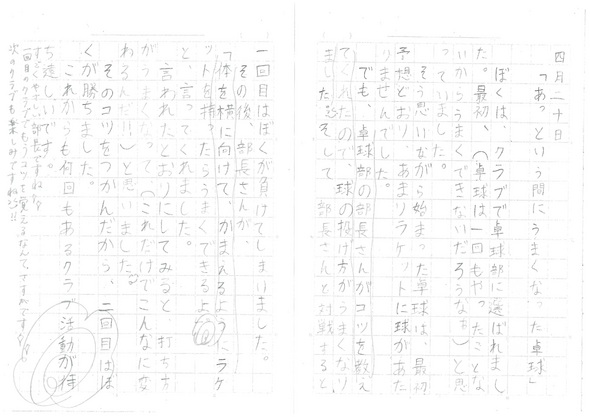 四月二十日
「あっという間にうまくなった卓球」
ぼくは、クラブで卓球部に選ばれまし
た。最初、（卓球は一回もやったことな
いからうまくできないだろうなぁ）と思
っていました。
そう思いながら始まった卓球は、最初
予想どおり、あまりラケットに球があた
りませんでした。
でも、卓球部の部長さんがコツを教え
てくれたので、球の投げ方がうまくなり
ました。そして部長さんと対戦すると、
一回目はぼくが負けてしまいました。
その後、部長さんが、
「体を横に向けて、かまえるようにラケ
ットを持ったらうまくできるよ。」
と、言ってくれました。
言われたとおりにしてみると、打ち方
がうまくなって（これだけでこんなに変
わるんだ!!）と思いました。
そのコツをつかんだから、二回目はぼ
くが勝ちました。
これからも何回もあるクラブ活動が待
ち遠しいです。
すごくやさしい部長ですね!!
一回目のクラブでもうコツを覚えるなんて、さすがです!!
次のクラブも楽しみですね!!